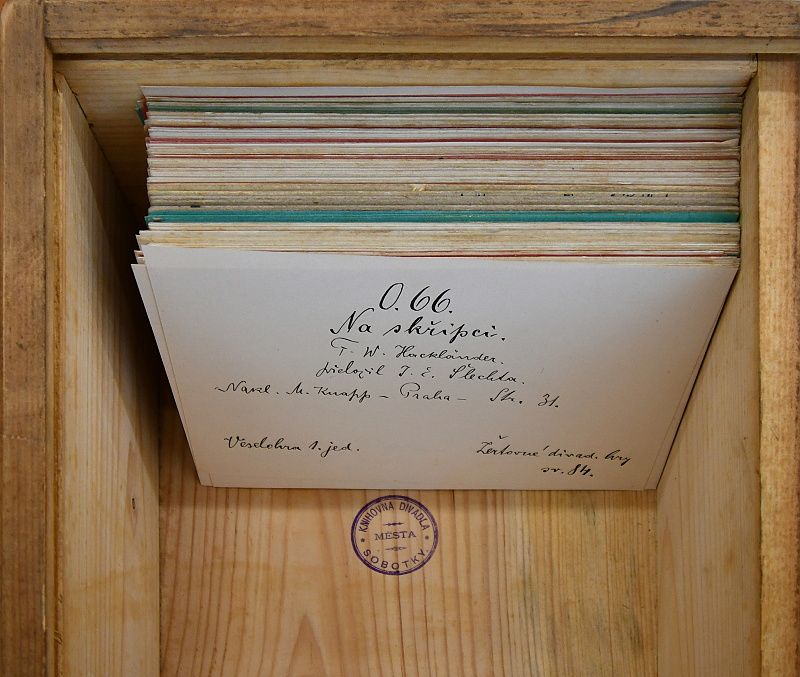 O. 66.
Na skřipci.
F. W. Hackländer.
přeložil J. E. Šlechta.
Nakl. M. Knapp - Praha - Str. 31.
Veselohra 1. jed.
Žertovné divad. hry
sv. 84.
KNIHOVNA DIVADLA
MĚSTA
SOBOTKY.